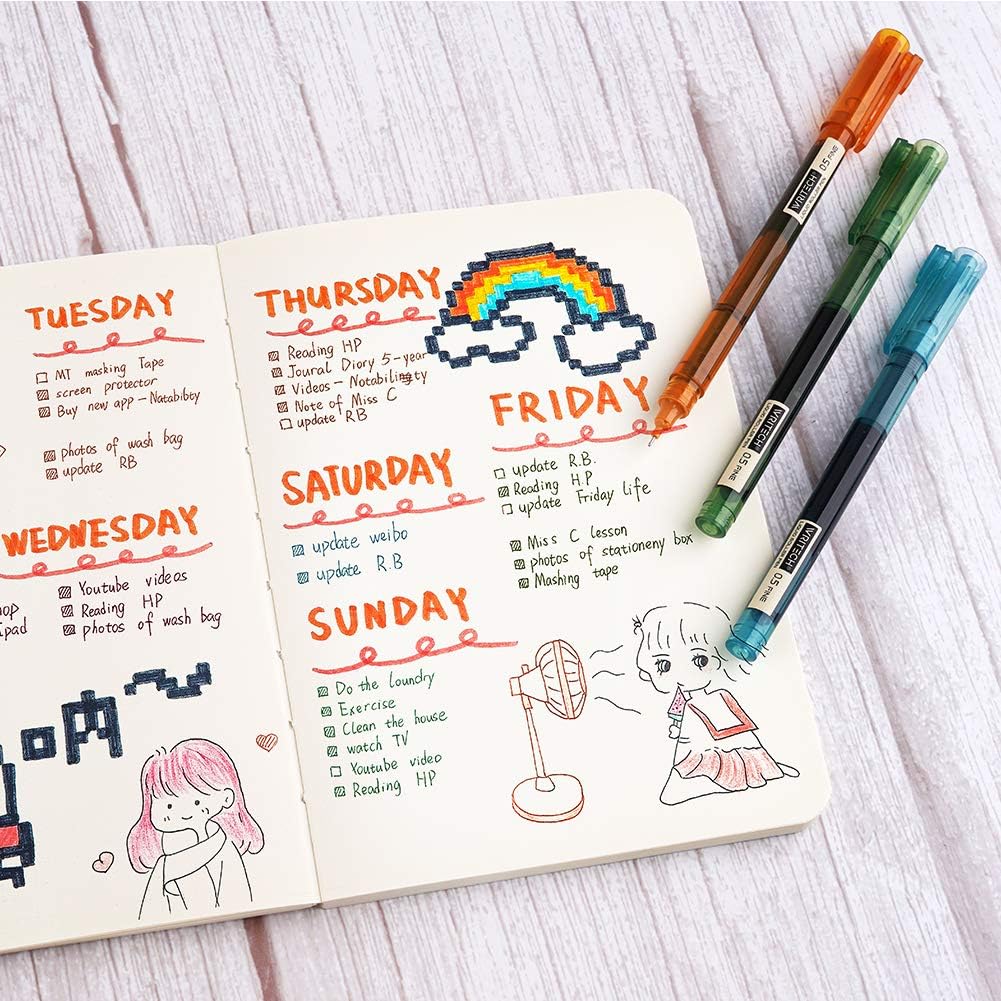 TUESDAY
MT masking Tape
screen protector
Buy new app - Natabibty
photos of wash bag
update RB
WEDNESDAY
Youtube videos
Reading HP
photos of wash bag
hop
ipad
THURSDAY
Reading HP
Joural Diary 5-year
Videos - Notabilingty
Note of Miss C
update RB
FRIDAY
update R.B.
Reading H.P
update Friday life
Miss C lesson
photos of stationeny box
Mashing tape
SATURDAY
update weibo
update R.B
SUNDAY
Do the loundry
Exercise
Clean the house
watch TV
Youtube video
Reading HP
WRITECH 0.5 FINE
WRITECH 0.5 FINE
WRITECH 0.5 FINE